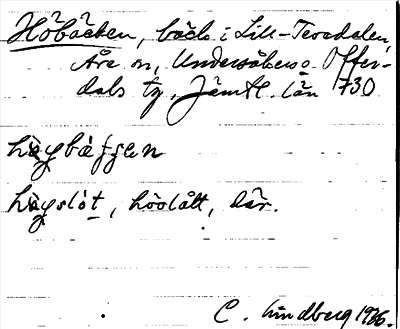 Höbäcken, bäck i Lill-Tevedalen,
Åre sn, Undersåkers o. Offer-
dals tg, Jämtl. län 730
hø̀ybàʃʃɛn
hø̀yslòt, höslått, där.
C. Lindberg 1986.